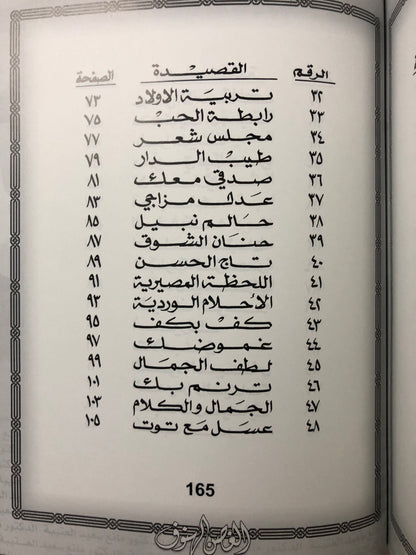 الرقم القصيدة الصفحة
٣٢ تربية الاولاد ٧٣
٣٣ رابطة الحب ٧٥
٣٤ مجلس شعر ٧٧
٣٥ طيب الدار ٧٩
٣٦ صدقي معك ٨١
٣٧ عدك مزاجي ٨٣
٣٨ حالم نبيل ٨٥
٣٩ حنان الشوق ٨٧
٤٠ تاج الحسن ٨٩
٤١ اللحظة المصيرية ٩١
٤٢ الاحلام الوردية ٩٣
٤٣ كف بكف ٩٥
٤٤ غموضك ٩٧
٤٥ لطف الجمال ٩٩
٤٦ ترنم بك ١٠١
٤٧ الجمال والكلام ١٠٣
٤٨ عسل مع توت ١٠٥
165